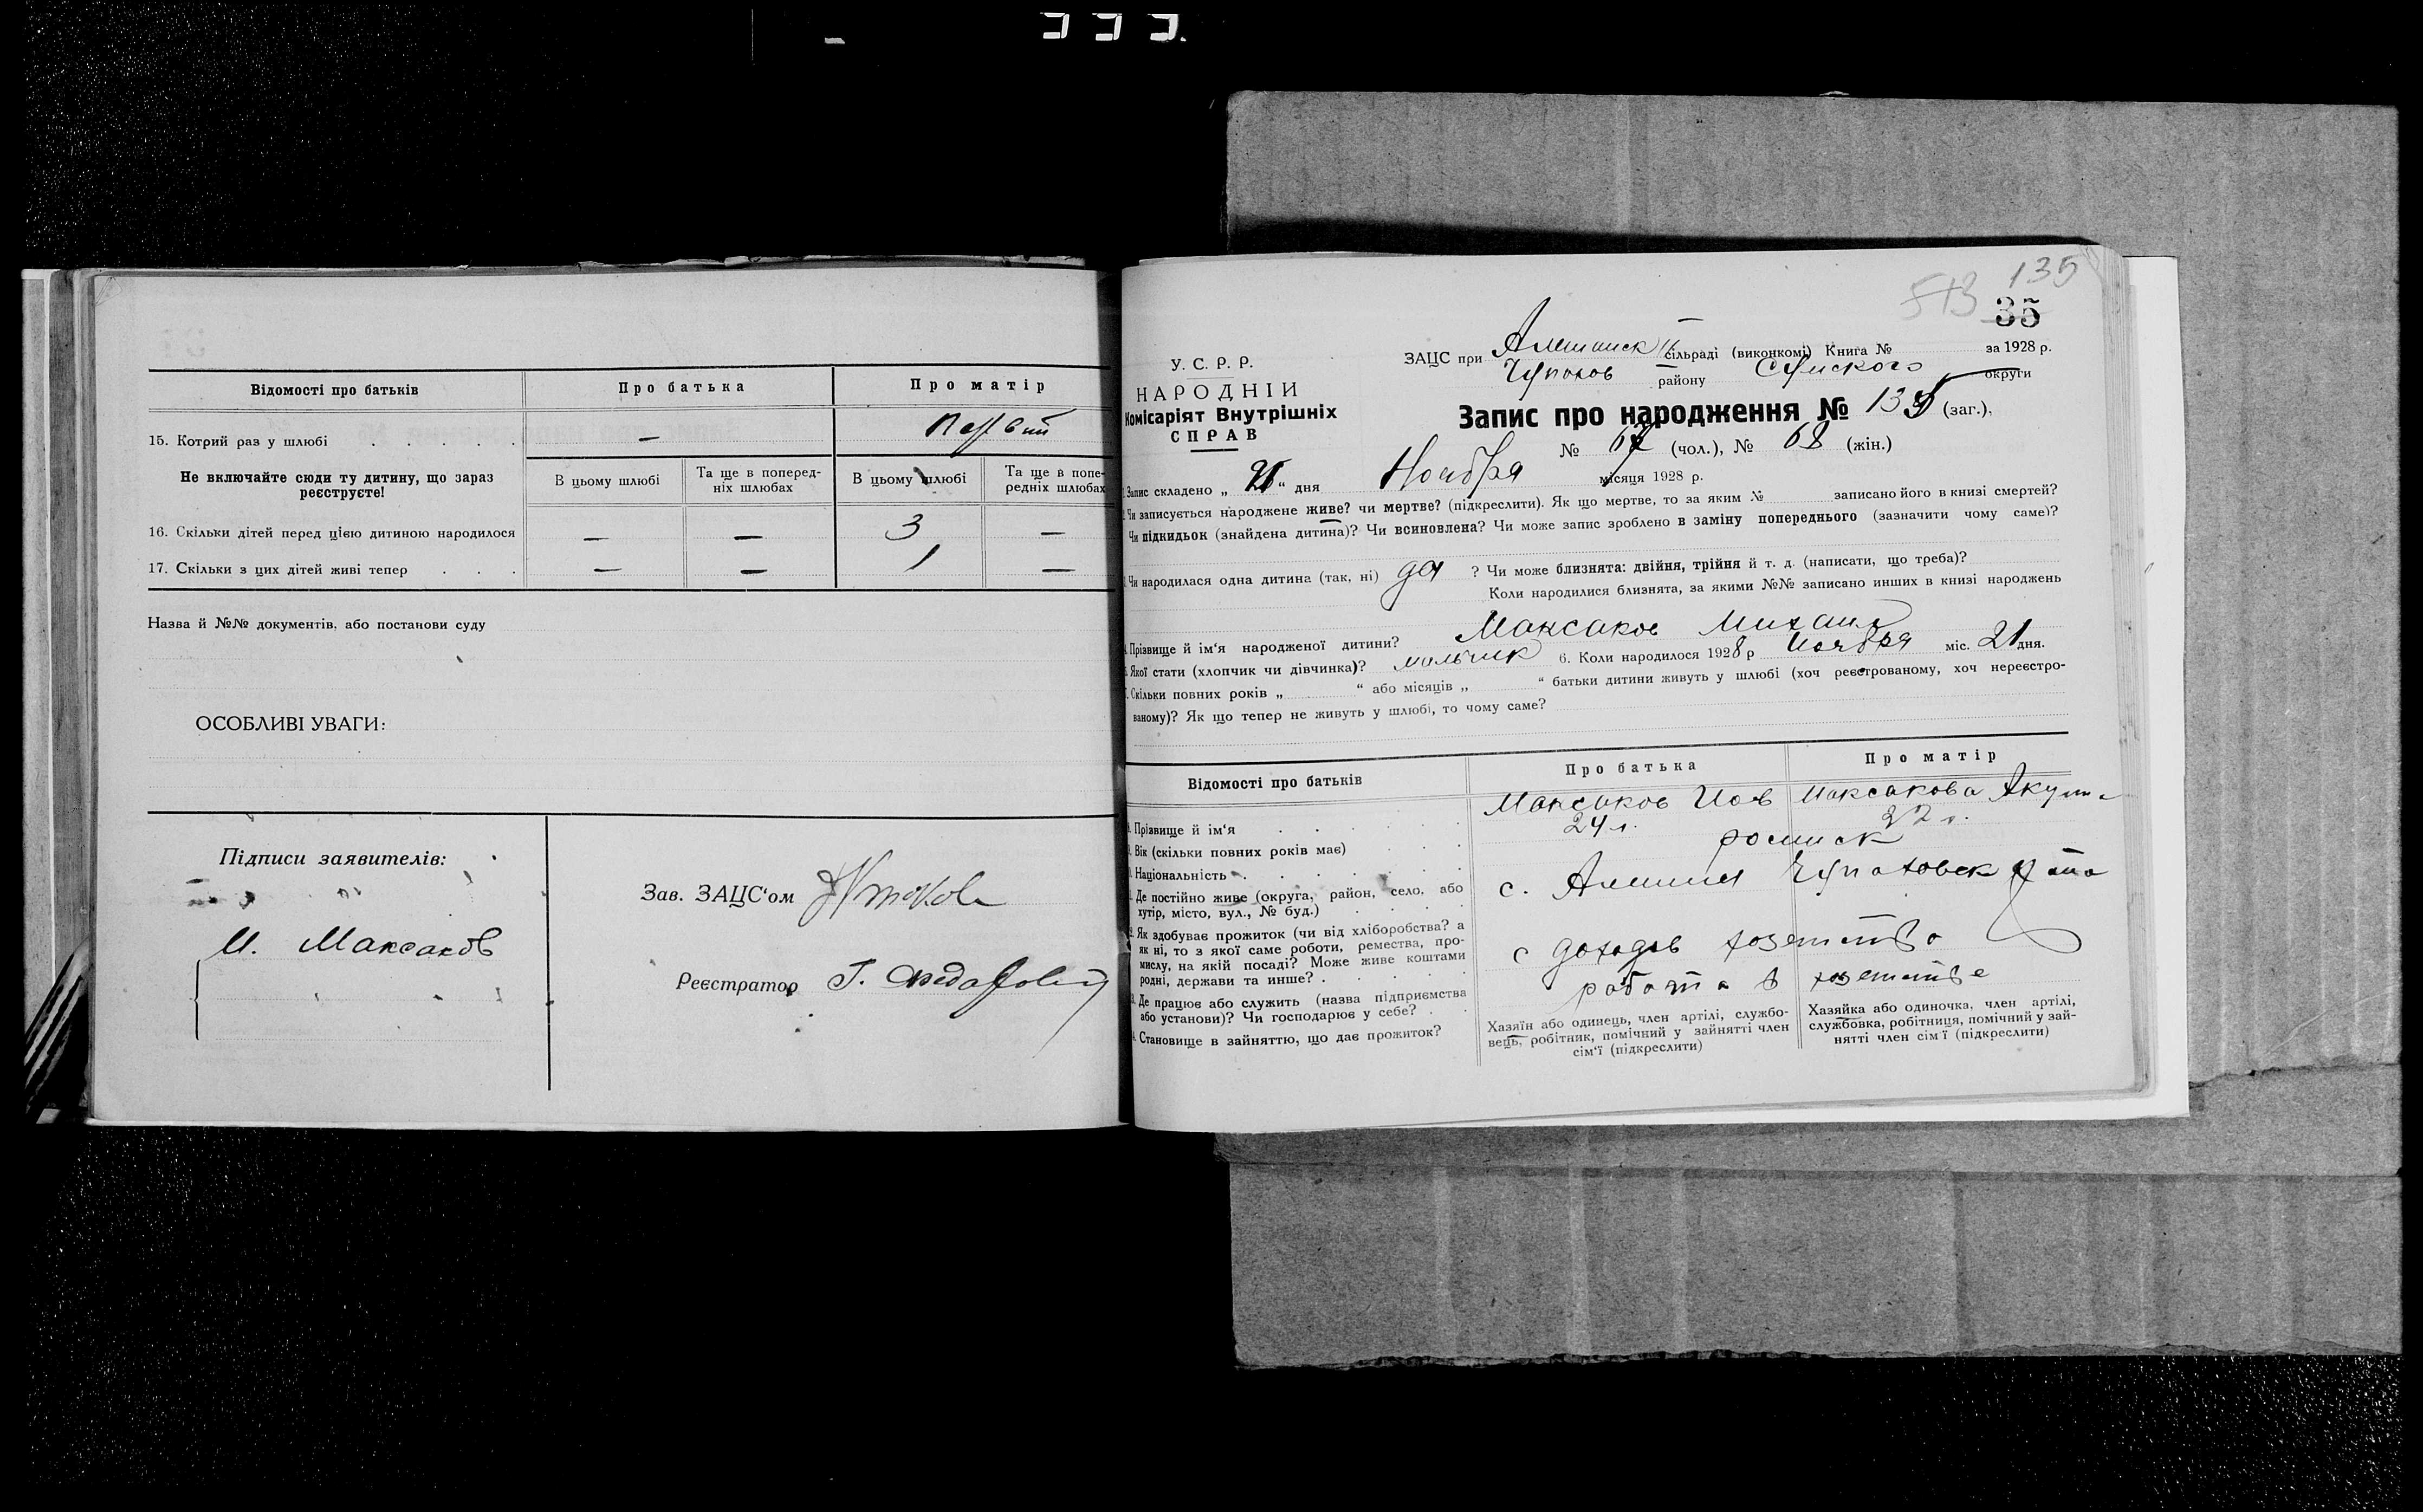 Відомості про батьків
Про батька
Про матір
15. Котрий раз у шлюбі
—
Первий
Не включайте сюди ту дитину, що зараз реєструєте!
В цьому шлюбі
Та ще в поперед-
ніх шлюбах
В цьому шлюбі
Та ще в попе-
редніх шлюбах
16. Скільки дітей перед цією дитиною народилося
— — 3 —
17. Скільки з цих дітей живі тепер
— — 1 —
Назва й №№ документів, або постанови суду
ОСОБЛИВІ УВАГИ:
Підписи заявителів:
И. Максаков
Зав. ЗАЦС‘ом
Реєстратор Г.
513 135
35
У. С. Р. Р.
НАРОДНІЙ
Комісаріят Внутрішніх
СПРАВ
ЗАЦС при сільраді (виконкомі) Книга № за 1928 р.
Чупахов району Сумского округи
Запис про народження № 135 (заг.),
№ 67 (чол.), № 68 (жін.)
Запис складено „ “ дня Ноября місяця 1928 р.
Чи записується народжене живе? чи мертве? (підкреслити). Як що мертве, то за яким № записано його в книзі смертей?
Чи підкидьок (знайдена дитина)? Чи всиновлена? Чи може запис зроблено в заміну попереднього (зазначити чому саме)?
Чи народилася одна дитина (так, ні) да ? Чи може близнята: двійня, трійня й т. д. (написати, що треба)?
Коли народилися близнята, за якими №№ записано инших в книзі народжень
Прізвище й ім‘я народженої дитини? Максаков Михаил
Якої стати (хлопчик чи дівчинка)? мальчик 6. Коли народилось 1928 р Ноября міс. 21 дня.
Скільки повних років „ “ або місяців „ “ батьки дитини живуть у шлюбі (хоч реєстрованому, хоч нереєстро-
ваному)? Як що тепер не живуть у шлюбі, то чому саме?
Відомості про батьків
Про батька
Про матір
Прізвище й ім‘я
Максаков Иов
Максакова Акулина
Вік (скільки повних років має)
24 л.
22 г.
Національність
росийск
Де постійно живе (округа, район, село, або
хутір, місто, вул., № буд.)
с. Алешня Чупаховск
Як здобуває прожиток (чи від хліборобства? а
як ні, то з якої саме роботи, ремества, про-
мислу, на якій посаді? Може живе коштами
родні, держави та инше?
с доходов хозяйства
Де працює або служить (назва підприємства
або установи)? Чи господарює у себе?
работа в хозяйстве
Становище в зайняттю, що дає прожиток?
Хазяїн або одинець, член артілі, службо-
вець, робітник, помічний у зайнятті член
сім‘ї (підкреслити)
Хазяйка або одиночка, член артілі,
службовка, робітниця, помічний у зай-
нятті член сім‘ї (підкреслити)